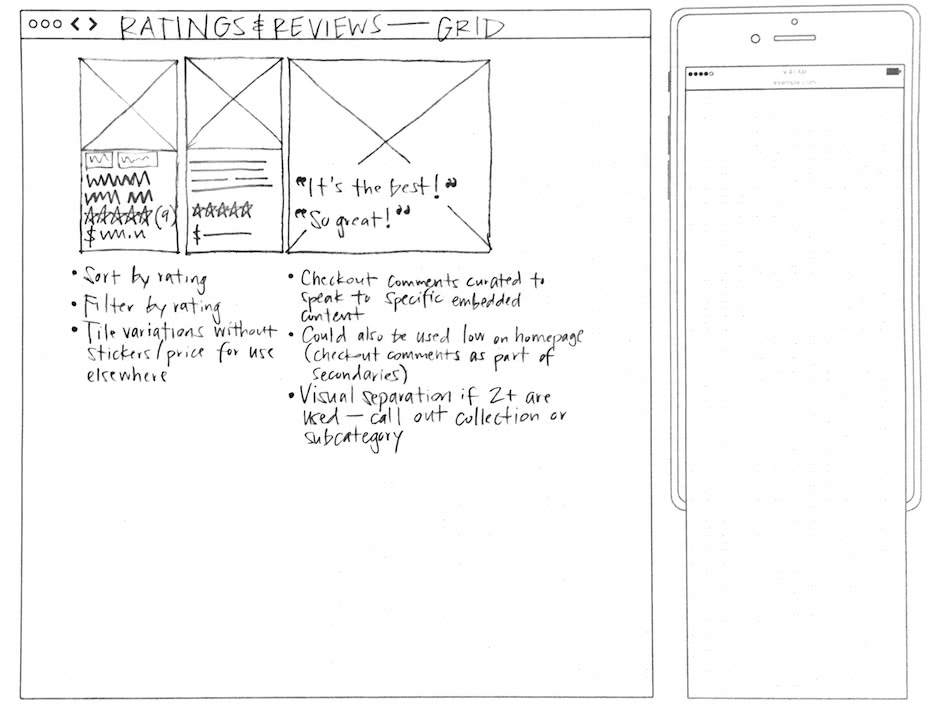 RATINGS & REVIEWS — GRID
(9)
$
$
"It's the best!"
"So great!"
• Sort by rating
• Filter by rating
• Tile variations without
stickers/price for use
elsewhere
• Checkout comments curated to
speak to specific embedded
content
• Could also be used low on homepage
(checkout comments as part of
secondaries)
• Visual separation if 2+ are
used — call out collection or
subcategory